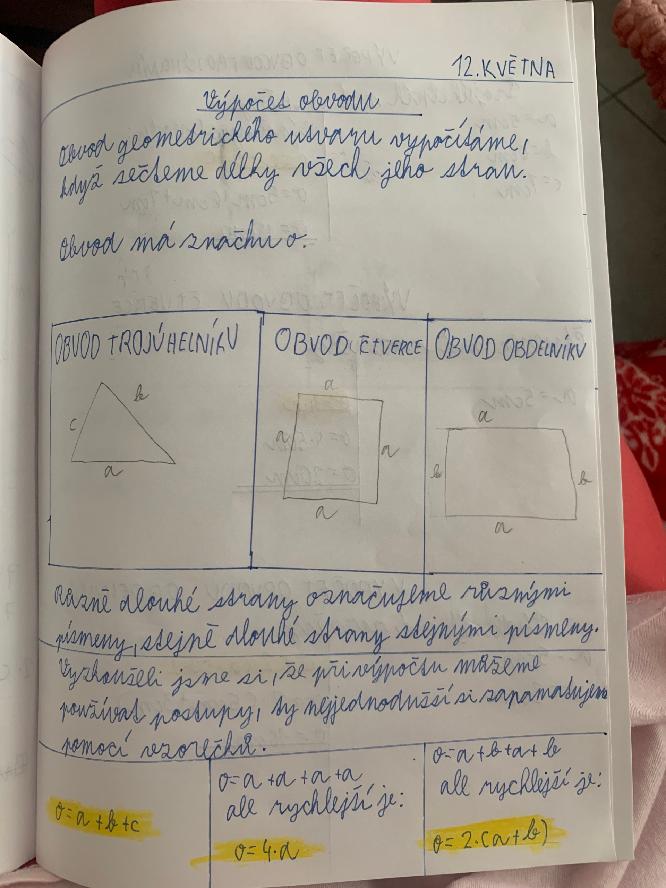 12. KVĚTNA
Výpočet obvodu
Obvod geometrického utvaru vypočítáme,
když sečteme délky všech jeho stran.
Obvod má značku o.
OBVOD TROJÚHELNÍKU OBVOD ČTVERCE OBVOD OBDELNÍKU
c b a
a a a a
a b b a
Různě dlouhé strany označujeme různými
písmeny, stejně dlouhé strany stejnými písmeny.
Vyzkoušeli jsme si, že při výpočtu můžeme
používat postupy, ty nejjednodušší si zapamatujem
pomocí vzorečků.
o=a+b+c
o=a+a+a+a
ale rychlejší je:
o=4·a
o=a+b+a+b
ale rychlejší je:
o=2·(a+b)